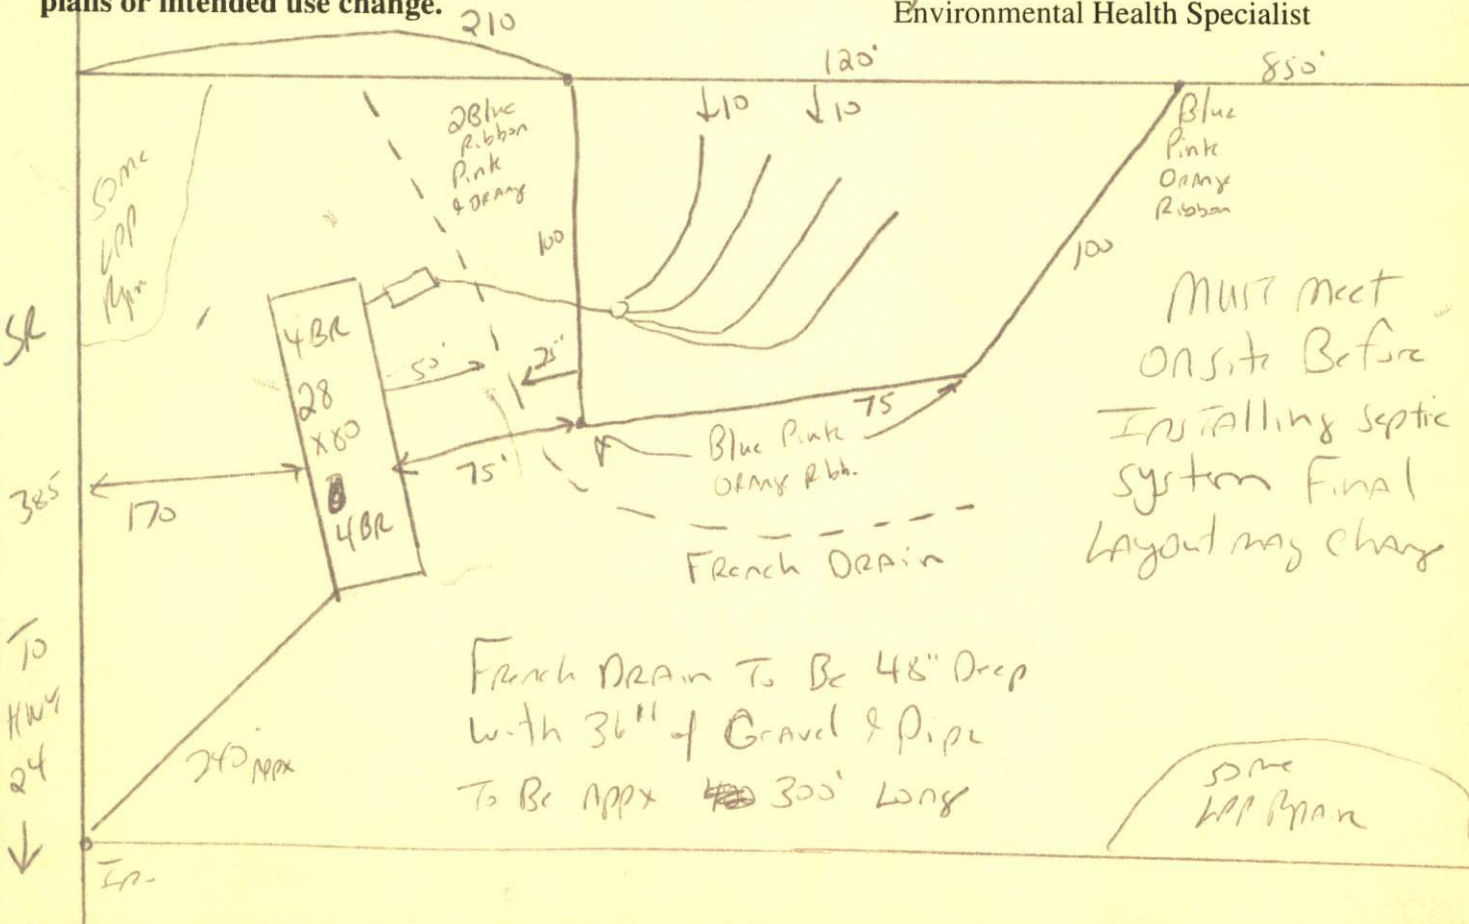 plans or intended use change.
Environmental Health Specialist
210
120'
850'
↓10
↓10
2Blue
Ribbon
Pink
& ORANG
Blue
Pink
ORANG
Ribbon
Some
LPP
Rpr
100
100
SR
4BR
28
x80
4BR
50'
25'
75'
75
Blue Pink
ORANG Rbb.
385
170
Must meet
Onsite Before
Installing septic
System Final
Layout may Chang
French DRAin
To
HWY
24
↓
240' Appx
French DRAin To Be 48" Deep
with 36" of Gravel & Pipe
To Be Appx 300' Long
some
LPP Rpair